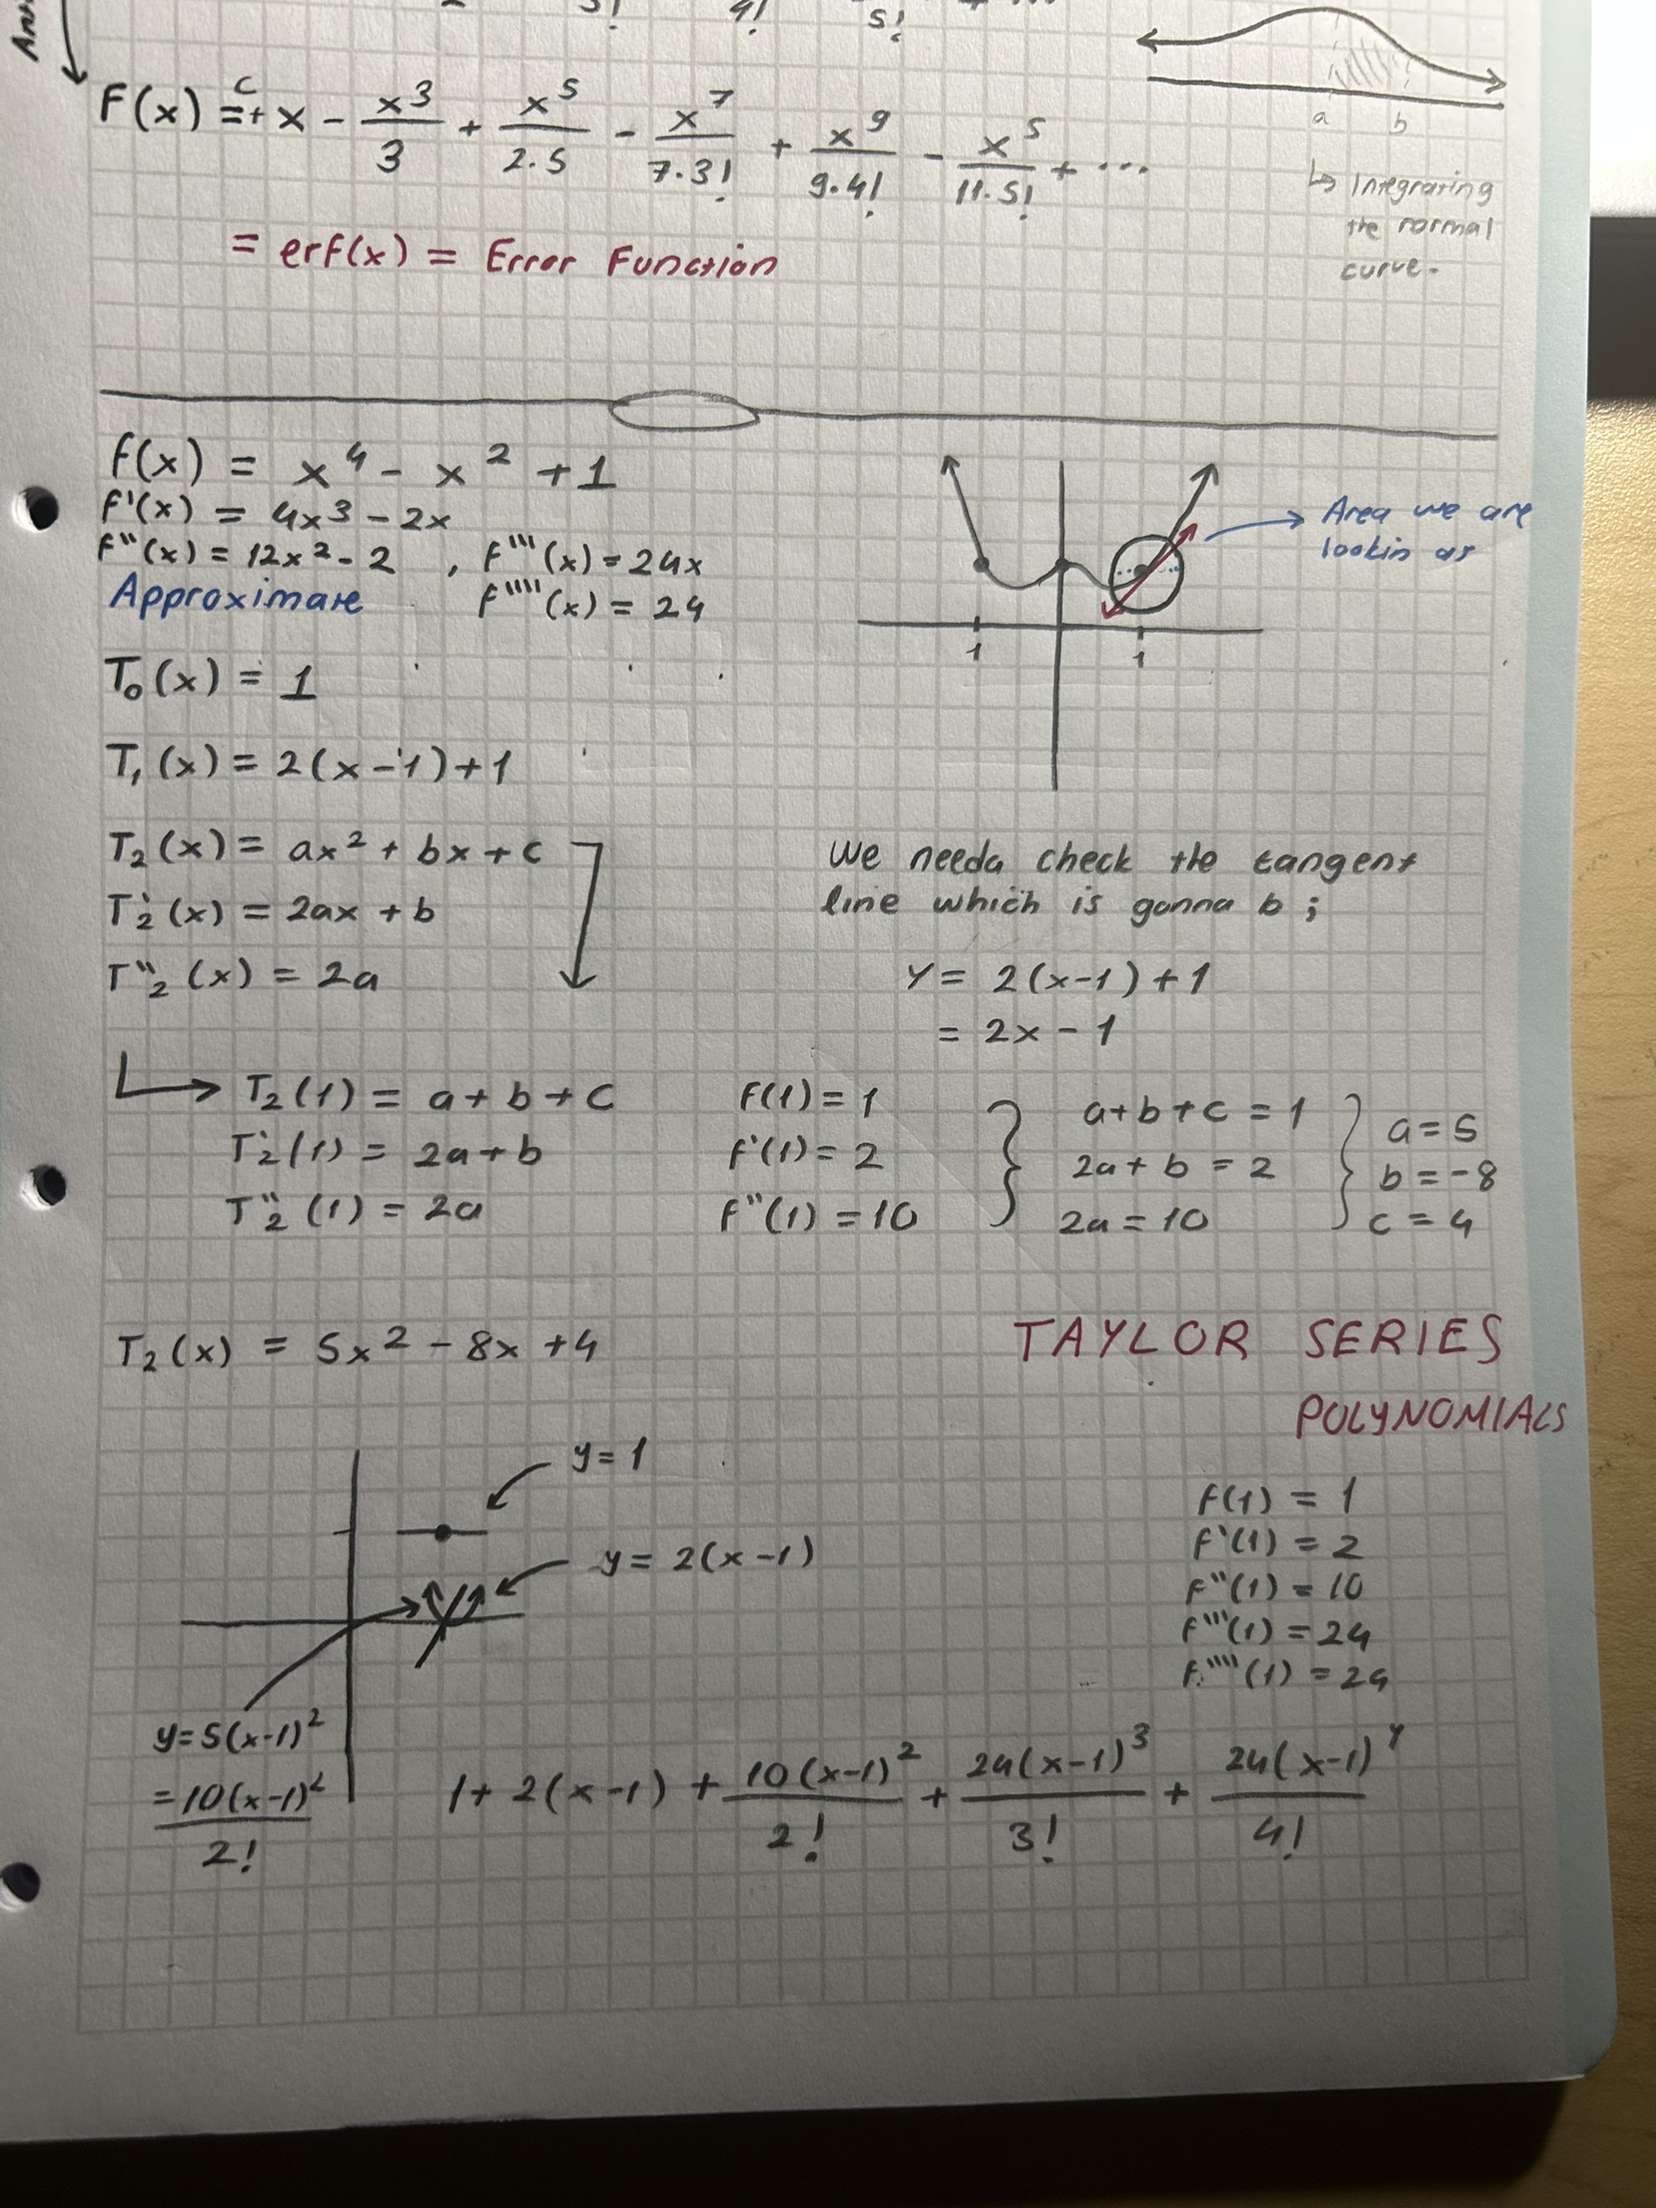 3! 4! 5! + ...
F(x) = c + x - x^3/3 + x^5/2.5 - x^7/7.3! + x^9/9.4! - x^5/11.5! + ...
a b
↳ Integrating
the normal
curve.
= erf(x) = Error Function
f(x) = x^4 - x^2 + 1
f'(x) = 4x^3 - 2x
f''(x) = 12x^2 - 2 , f'''(x) = 24x
Approximate f''''(x) = 24
Area we are
lookin at
1 1
T₀(x) = 1
T₁(x) = 2(x-1)+1
T₂(x) = ax^2 + bx + c
T₂'(x) = 2ax + b
T₂''(x) = 2a
We needa check the tangent
line which is gonna b ;
Y = 2(x-1) + 1
= 2x - 1
T₂(1) = a + b + c f(1) = 1 a+b+c = 1 a = 5
T₂'(1) = 2a + b f'(1) = 2 2a + b = 2 b = -8
T₂''(1) = 2a f''(1) = 10 2a = 10 c = 4
T₂(x) = 5x^2 - 8x + 4
TAYLOR SERIES
POLYNOMIALS
y = 1
y = 2(x-1)
f(1) = 1
f'(1) = 2
f''(1) = 10
f'''(1) = 24
f''''(1) = 24
y = 5(x-1)^2
= 10(x-1)^2/2!
1 + 2(x-1) + 10(x-1)^2/2! + 24(x-1)^3/3! + 24(x-1)^4/4!